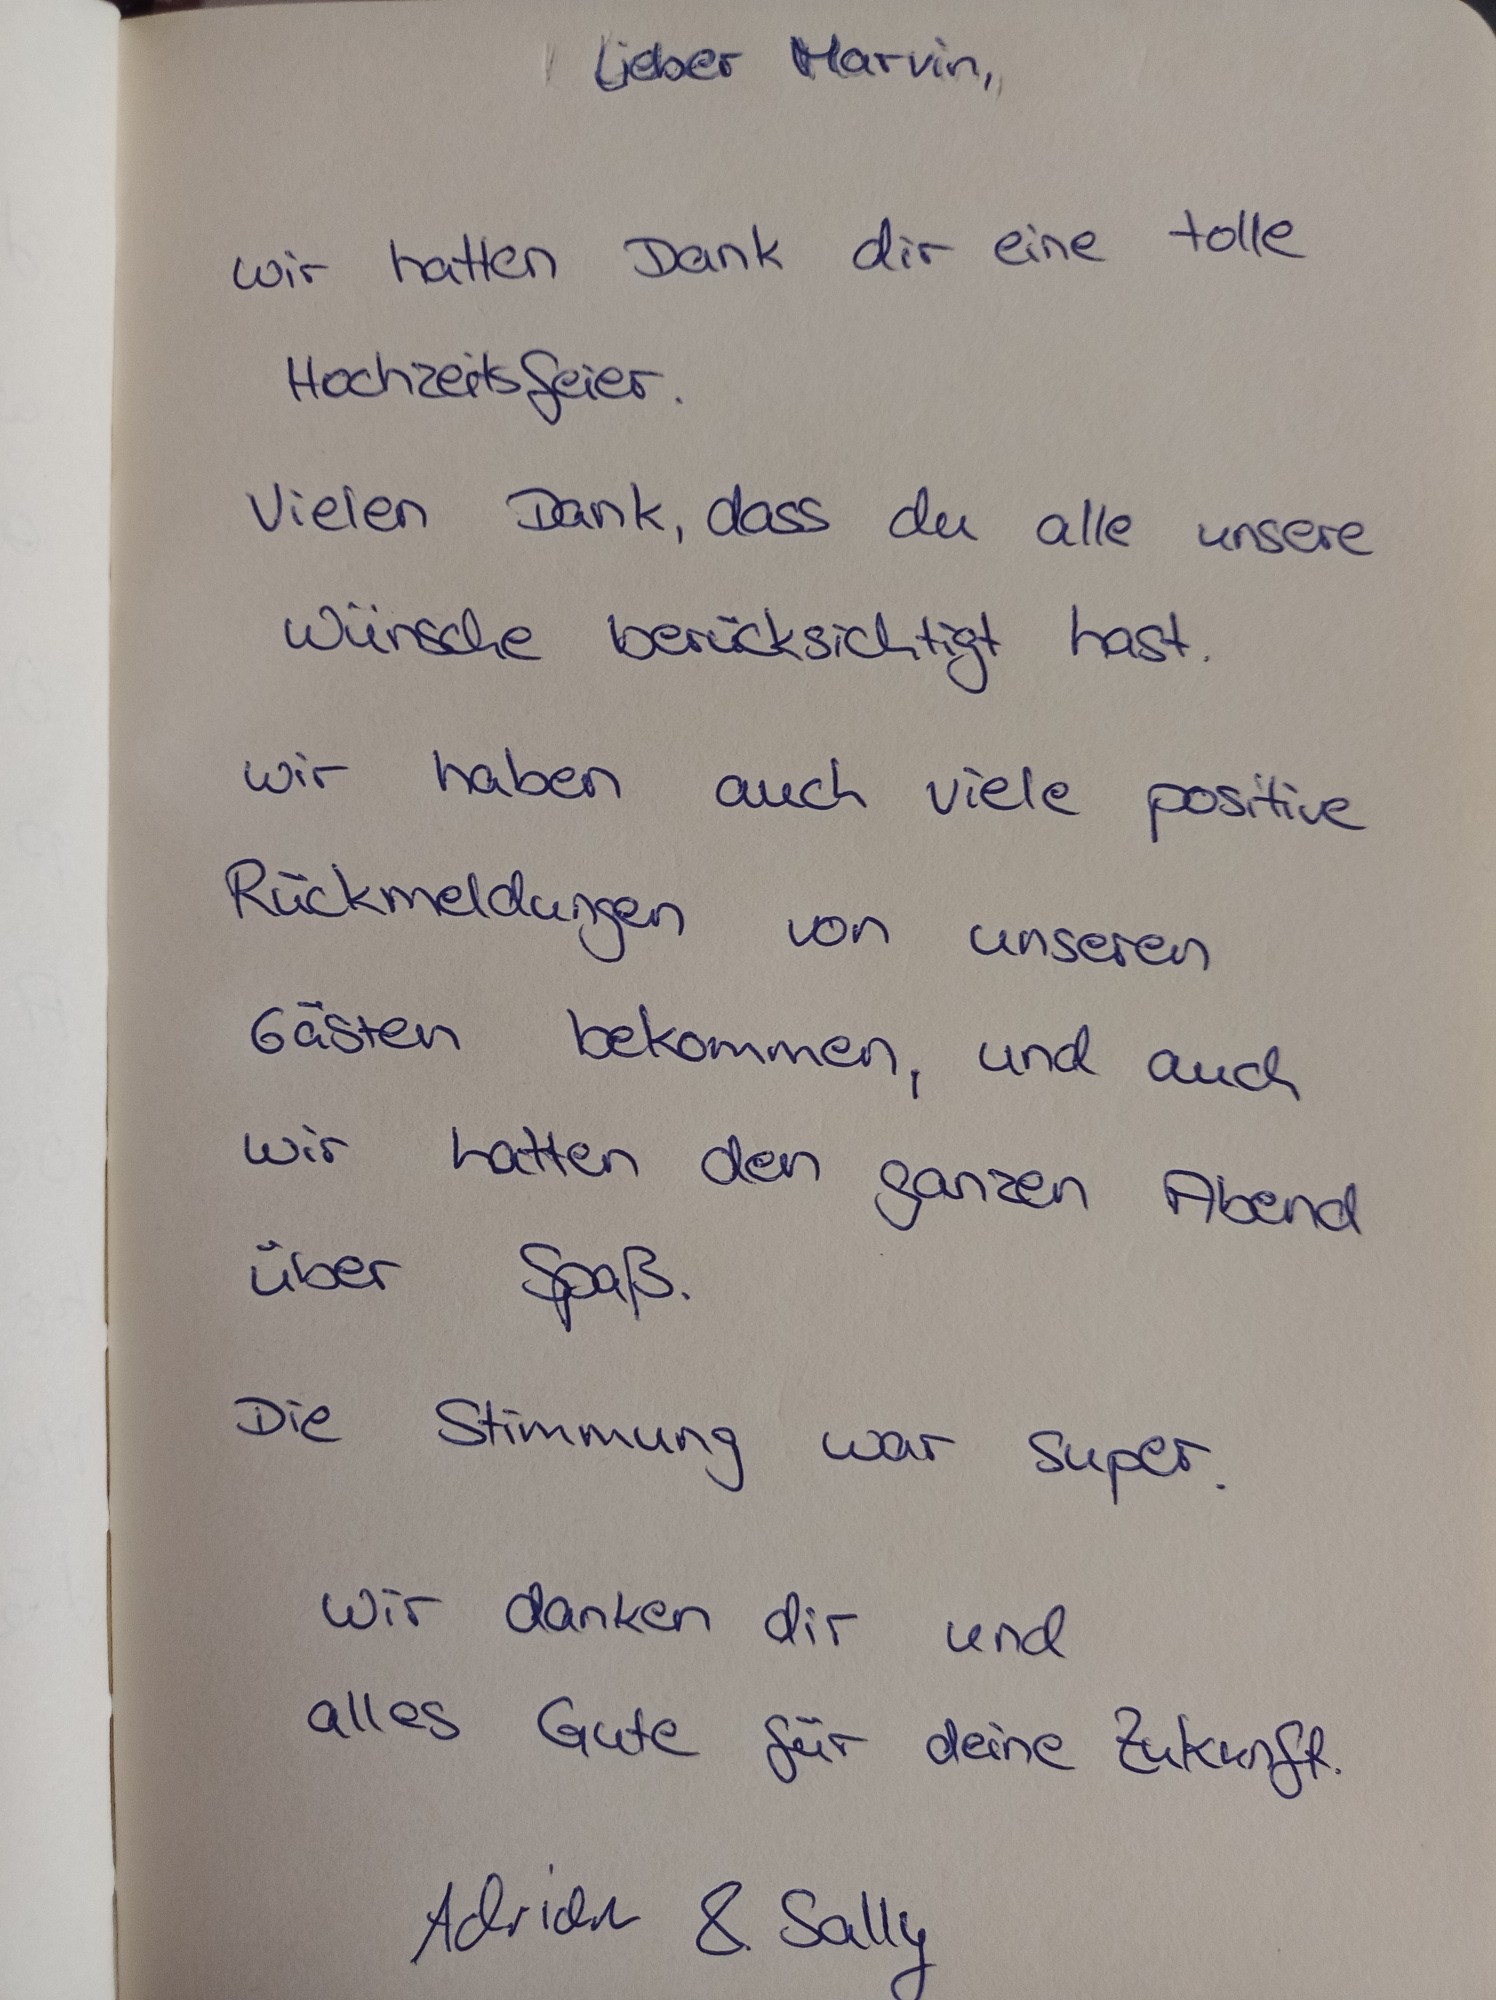 Lieber Marvin,
wir hatten Dank dir eine tolle
Hochzeitsfeier.
Vielen Dank, dass du alle unsere
Wünsche berücksichtigt hast.
wir haben auch viele positive
Rückmeldungen von unseren
Gästen bekommen, und auch
wir hatten den ganzen Abend
über Spaß.
Die Stimmung war super.
Wir danken dir und
alles Gute für deine Zukunft.
Adrian & Sally